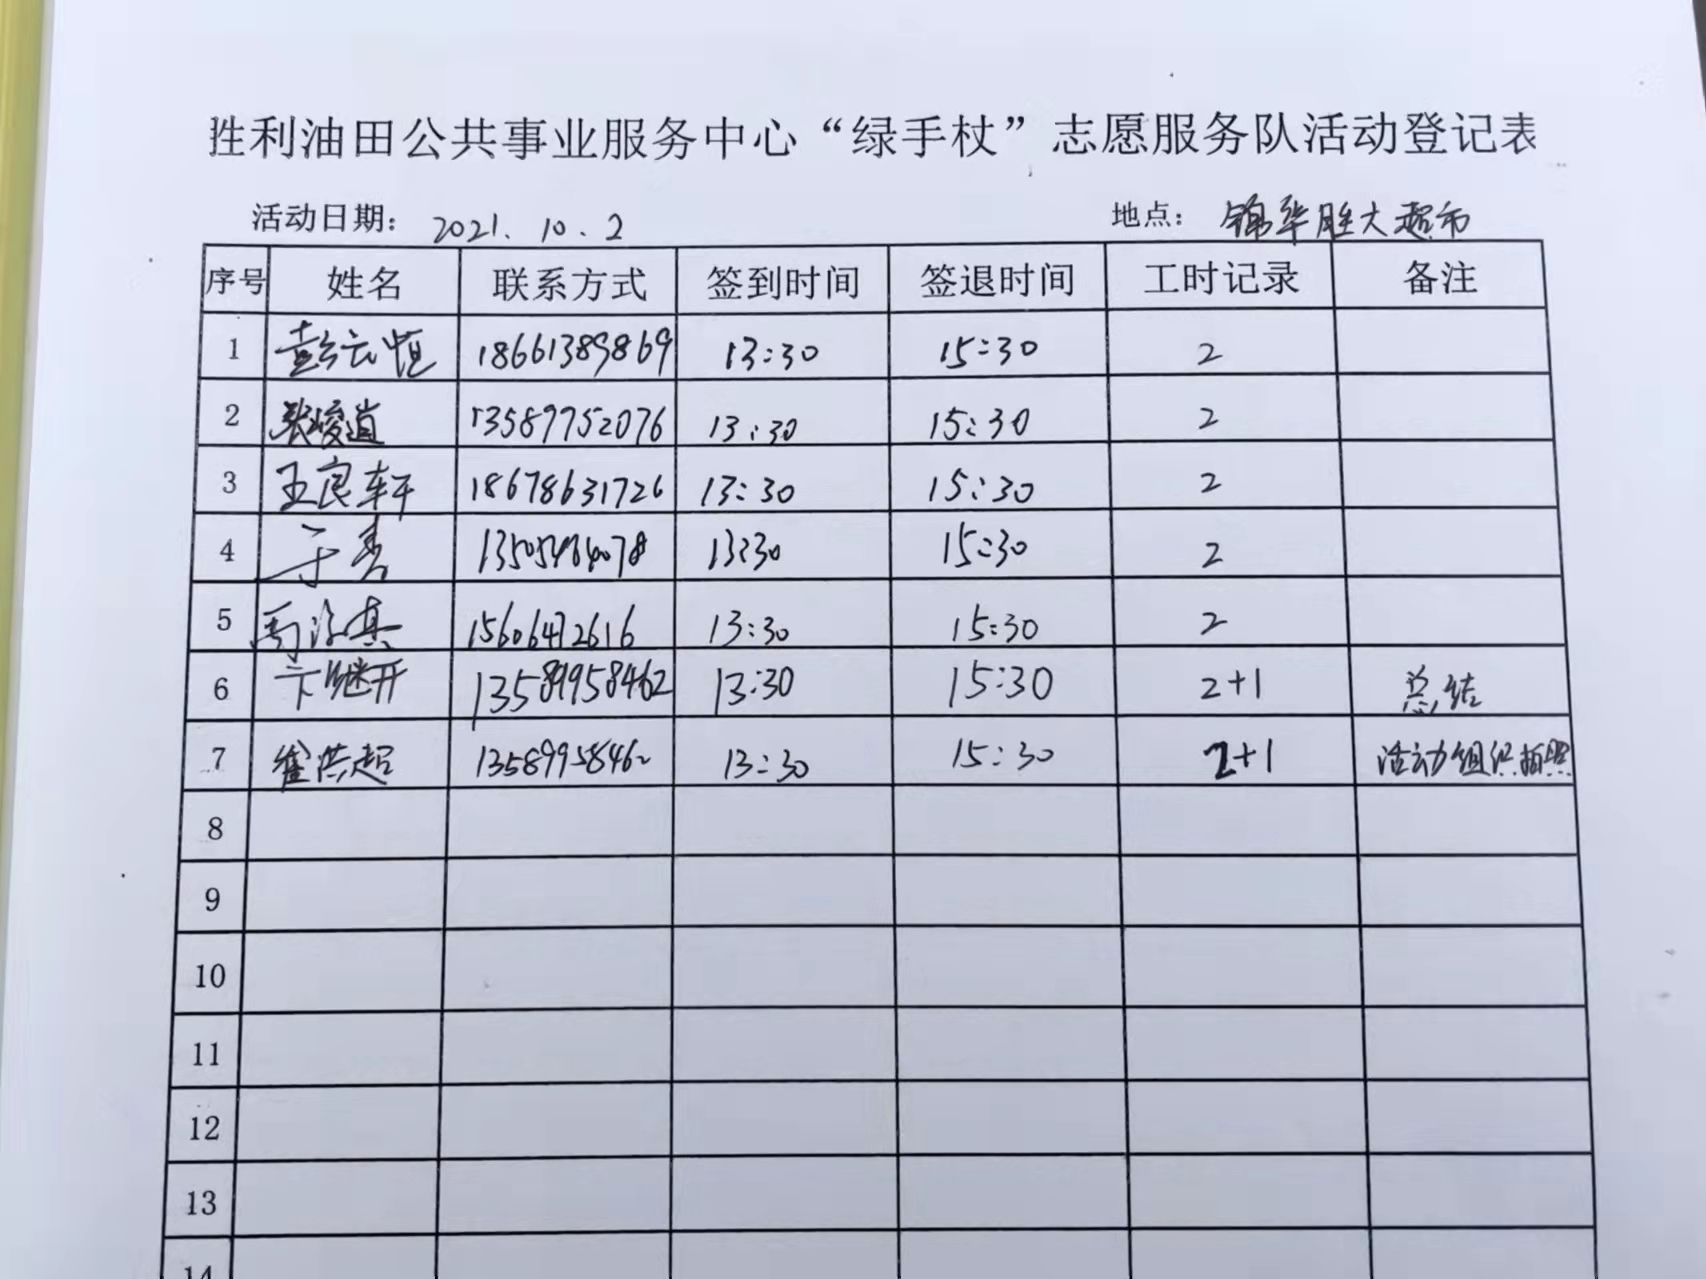 胜利油田公共事业服务中心“绿手杖”志愿服务队活动登记表
活动日期： 2021.10.2 地点： 锦华胜大超市
序号 姓名 联系方式 签到时间 签退时间 工时记录 备注
1 彭云恒 18661389869 13:30 15:30 2
2 张峻道 13589752076 13:30 15:30 2
3 王良轩 18678631726 13:30 15:30 2
4 于秀 13505464078 13:30 15:30 2
5 15606472616 13:30 15:30 2
6 卞继开 13589958462 13:30 15:30 2+1 总结
7 崔洪超 13589958462 13:30 15:30 2+1 活动组织拍照
8
9
10
11
12
13
14